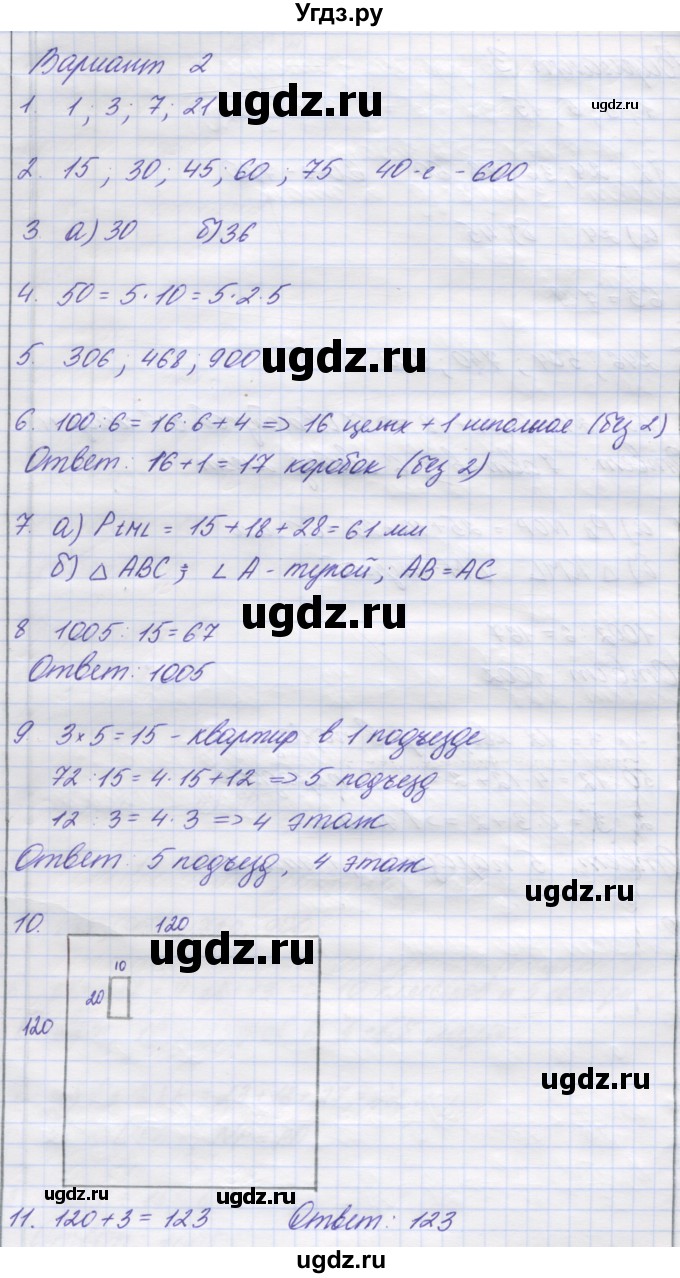 Угдз.ру
Вариант 2
1. 1; 3; 7; 21
ugdz.ru
ugdz.ru
2. 15; 30; 45; 60; 75 40-е - 600
3 а) 30 б) 36
4. 50 = 5·10 = 5·2·5
5. 306; 468; 900
ugdz.ru
6. 100:6 = 16·6+4 => 16 целых + 1 неполное (без 2)
Ответ: 16+1 = 17 коробок (без 2)
7. а) P = 15+18+28 = 61 мм
б) △ ABC; ∠ A - тупой; AB = AC
ugdz.ru
8 1005:15 = 67
Ответ: 1005
9 3×5 = 15 - квартир в 1 подъезде
72:15 = 4·15+12 => 5 подъезд
12:3 = 4·3 => 4 этаж
Ответ: 5 подъезд, 4 этаж
ugdz.ru
10.
120
ugdz.ru
10
20
120
ugdz.ru
ugdz.ru
ugdz.ru
11. 120+3 = 123 Ответ: 123
ugdz.ru